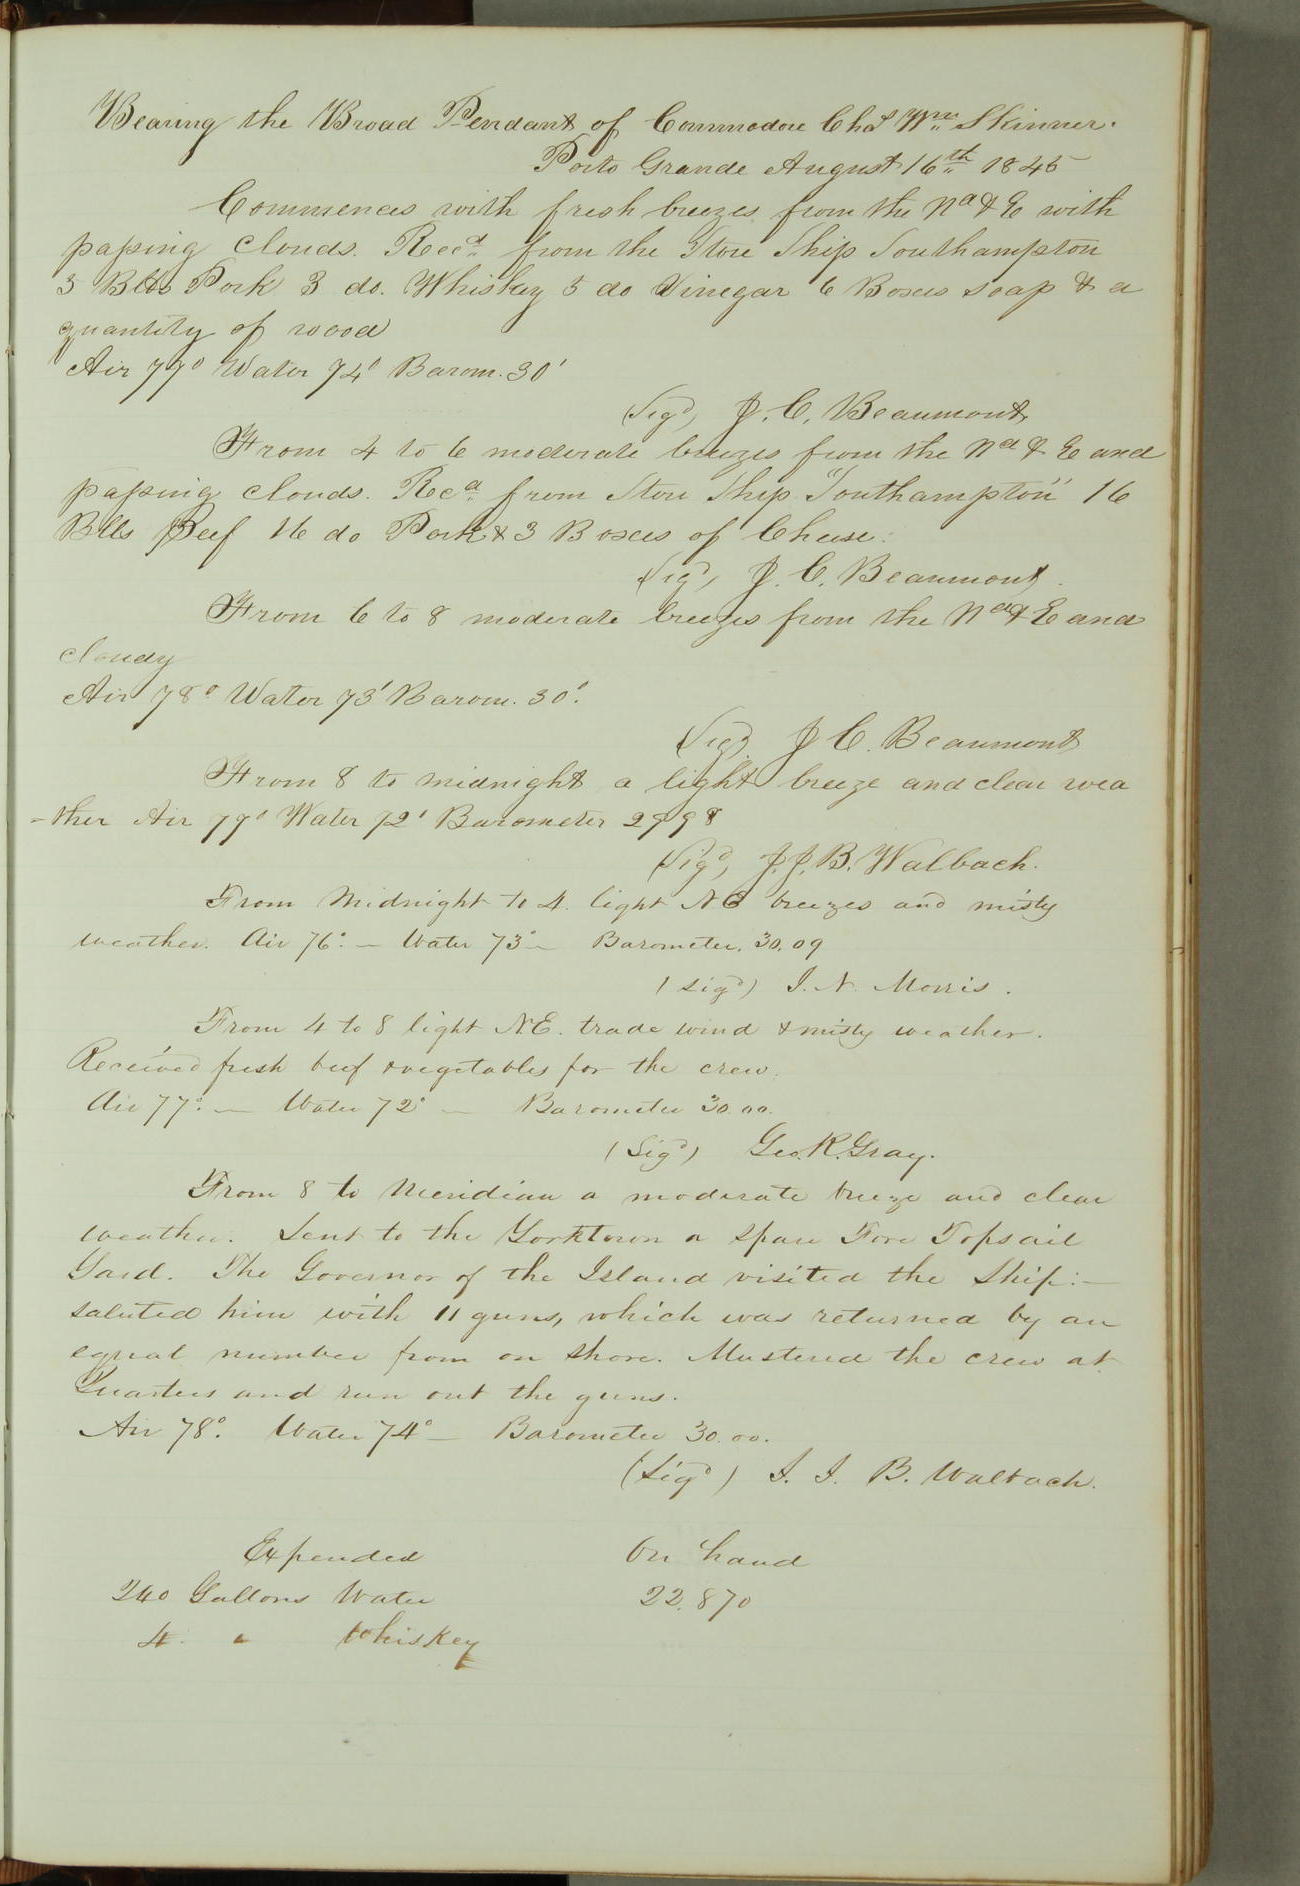 Bearing the Broad Pendant of Commodore Chas Wm Skinner.
Porto Grande August 16th 1845
Commences with fresh breezes from the Nd & E with
passing clouds. Recd from the Store Ship Southampton
3 Blls Pork 3 do. Whiskey 5 do Vinegar 6 Boxes soap & a
quantity of wood
Air 77° Water 74° Barom. 30'
(Sigd) J. C. Beaumont
From 4 to 6 moderate breezes from the Nd & E and
passing clouds. Recd from Store Ship "Southampton" 16
Blls Beef 16 do Pork & 3 Boxes of Cheese.
Sigd, J. C. Beaumont.
From 6 to 8 moderate breezes from the Nd & E and
cloudy
Air 78° Water 73' Barom. 30'.
(Sigd). J C. Beaumont
From 8 to midnight a light breeze and clear wea
-ther Air 79' Water 72' Barometer 29 98
(Sigd, J. J. B. Walbach.
From Midnight to 4. light NE breezes and misty
weather. Air 76°. — Water 73° — Barometer. 30.09
(Sigd) I. N. Morris.
From 4 to 8 light NE. trade wind & misty weather.
Received fresh beef & vegetables for the crew.
Air 77°. — Water 72° — Barometer 30.00.
(Sigd) Geo. R. Gray.
From 8 to Meridian a moderate breeze and clear
weather. Sent to the Yorktown a spare Fore Topsail
Yard. The Governor of the Island visited the Ship:—
saluted him with 11 guns, which was returned by an
equal number from on shore. Mustered the crew at
Quarters and run out the guns.
Air 78°. Water 74° — Barometer 30.00.
(Sigd) J. J. B. Walbach.
Expended On hand
240 Gallons Water 22.870
4. " Whiskey